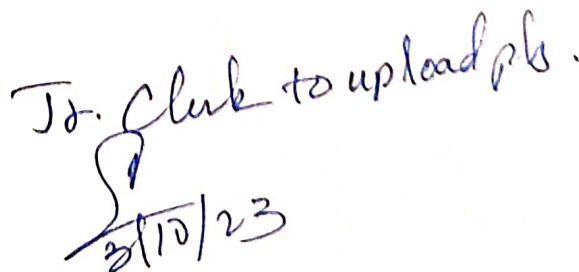 Jr. Clerk to upload pls.
3/10/23